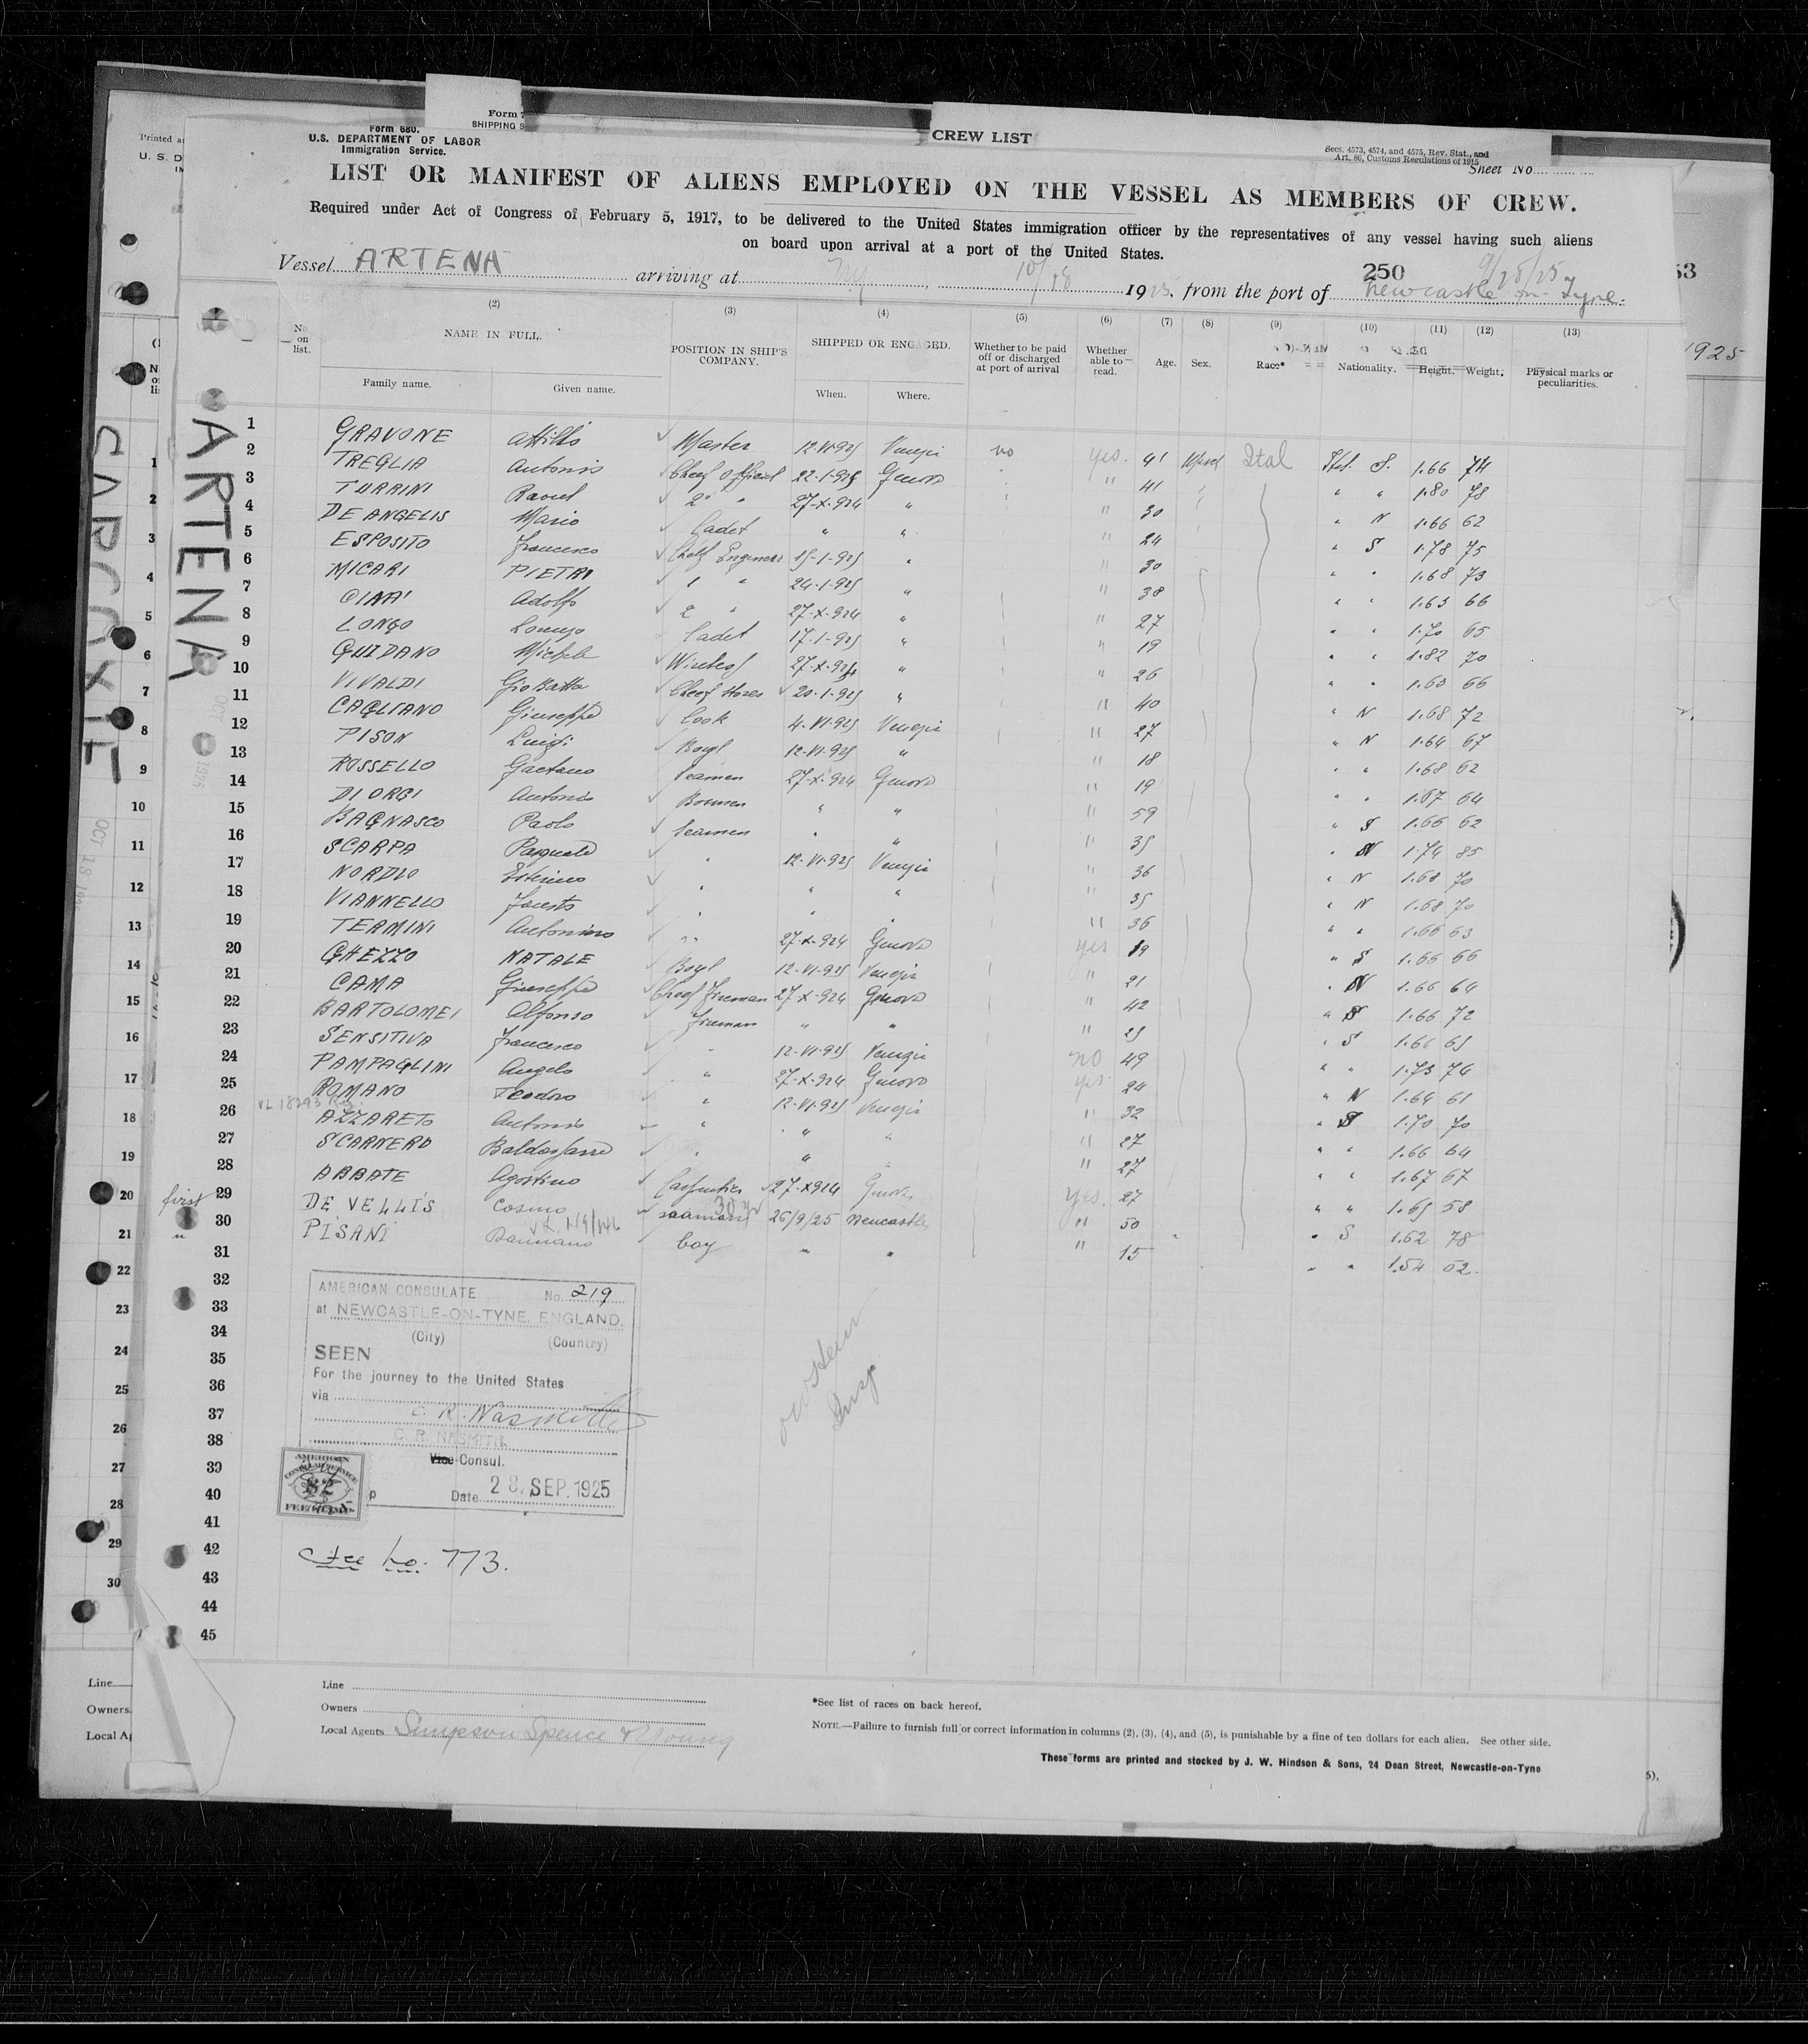 Form 680.
U.S. DEPARTMENT OF LABOR
Immigration Service.
CREW LIST
Secs. 4573, 4574, and 4575, Rev. Stat., and
Art. 86, Customs Regulations of 1915
Sheet No.
LIST OR MANIFEST OF ALIENS EMPLOYED ON THE VESSEL AS MEMBERS OF CREW.
Required under Act of Congress of February 5, 1917, to be delivered to the United States immigration officer by the representatives of any vessel having such aliens
on board upon arrival at a port of the United States.
250 9/28/25
Vessel ARTENA arriving at NY, 10/18 1925, from the port of Newcastle on Tyne.
(2) (3) (4) (5) (6) (7) (8) (9) (10) (11) (12) (13)
No. on list. NAME IN FULL. Family name. Given name. POSITION IN SHIP'S COMPANY. SHIPPED OR ENGAGED. When. Where. Whether to be paid off or discharged at port of arrival Whether able to read. Age. Sex. Race* Nationality. Height. Weight. Physical marks or peculiarities.
1 GRAVONE Attilio Master 12-VI-925 Venezia no yes. 41 Ital Ital. S. 1.66 74
2 TREGLIA Antonio Cheef Officiel 22-1-925 Genova " 41 " " 1.80 78
3 TURRINI Raoul 2° " 27-X-924 " " 30 " N 1.66 62
4 DE ANGELIS Mario Cadet " " " 24 " S 1.78 75
5 ESPOSITO Francesco Cheef Engineer 15-1-925 " " 30 " " 1.68 73
6 MICARI PIETRI 1 " 24-1-925 " " 38 " " 1.63 66
7 CINA' Adolfo 2 " 27-X-924 " " 27 " " 1.70 65
8 LONGO Lorenzo Cadet 17-1-925 " " 19 " " 1.82 70
9 GUIDANO Michele 27-X-924 " " 26 " " 1.63 66
10 VIVALDI Gio Batta 20-1-925 " " 40 " N 1.68 72
11 CAGLIANO Giuseppe Cook 4-VI-925 Venezia " 27 " N 1.64 67
12 PISON Luigi Boyl 12-VI-925 " " 18 " " 1.68 62
13 ROSSELLO Gaetano Seamen 27-X-924 Genova " 19 " " 1.67 64
14 DI ORGI Antonio " " " 59 " S 1.66 62
15 BAGNASCO Paolo Seamen " " " 35 " N 1.74 85
16 SCARPA Pasquale " 12-VI-925 Venezia " 36 " N 1.68 70
17 NORDIO " " " " 35 " N 1.68 70
18 VIANNELLO Fausto " " " " 36 " " 1.66 63
19 TERMINI Antonino " 27-X-924 Genova yes 19 " S 1.66 66
20 GHEZZO NATALE Boyl 12-VI-925 Venezia " 21 " N 1.66 64
21 CAMA Giuseppe Cheef Fireman 27-X-924 Genova " 42 " S 1.66 72
22 BARTOLOMEI Alfonso Fireman " " " 25 " S 1.66 65
23 SENSITIVA Francesco " 12-VI-925 Venezia no 49 " " 1.73 74
24 PAMPAGLINI Angelo " 27-X-924 Genova yes 24 " N 1.64 61
25 ROMANO Teodoro " 12-VI-925 Venezia " 32 " S 1.70 70
26 AZZARETO Antonio " " " " 27 " " 1.66 64
27 SCARNERO Baldassarre " " " " 27 " " 1.67 67
28 ABBATE Agostino Carpentier 27-X924 Genova yes. 27 " " 1.65 58
first 29 DE VELLIS Cosimo seaman 26/9/25 Newcastle " 50 " S 1.62 78
" 30 PISANI Damiano boy " " " 15 " " 1.54 52.
31
32
33
34
35
36
37
38
39
40
41
42
43
44
45
AMERICAN CONSULATE No. 219
at NEWCASTLE-ON-TYNE, ENGLAND.
(City) (Country)
SEEN
For the journey to the United States
via
C. R. Nasmith
C. R. NASMITH
Vice-Consul.
Date 28. SEP. 1925
AMERICAN
CONSULAR SERVICE
$2
FEE STAMP
Fee no. 773.
Line
Owners
Local Agents Simpson Spence & Young
*See list of races on back hereof.
NOTE.—Failure to furnish full or correct information in columns (2), (3), (4), and (5), is punishable by a fine of ten dollars for each alien. See other side.
These forms are printed and stocked by J. W. Hindson & Sons, 24 Dean Street, Newcastle-on-Tyne
ARTENA
1925